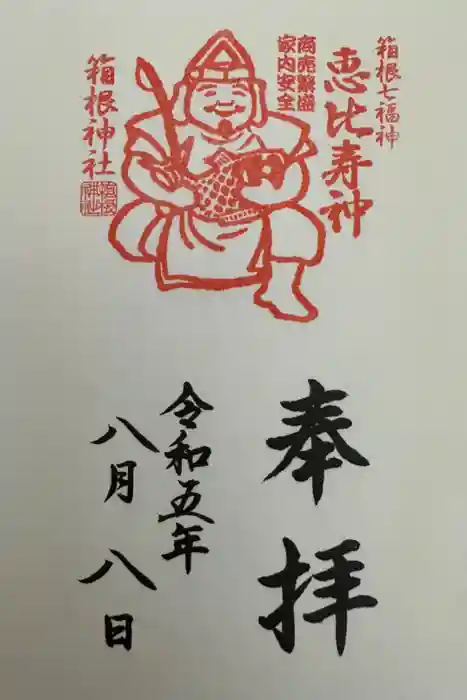 箱根七福神
恵比寿神
商売繁盛
家内安全
箱根神社
奉拝
令和五年
八月八日